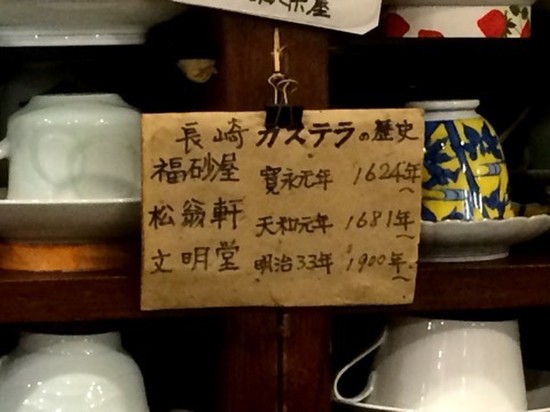 長崎カステラの歴史
福砂屋 寛永元年 1624年〜
松翁軒 天和元年 1681年〜
文明堂 明治33年 1900年〜